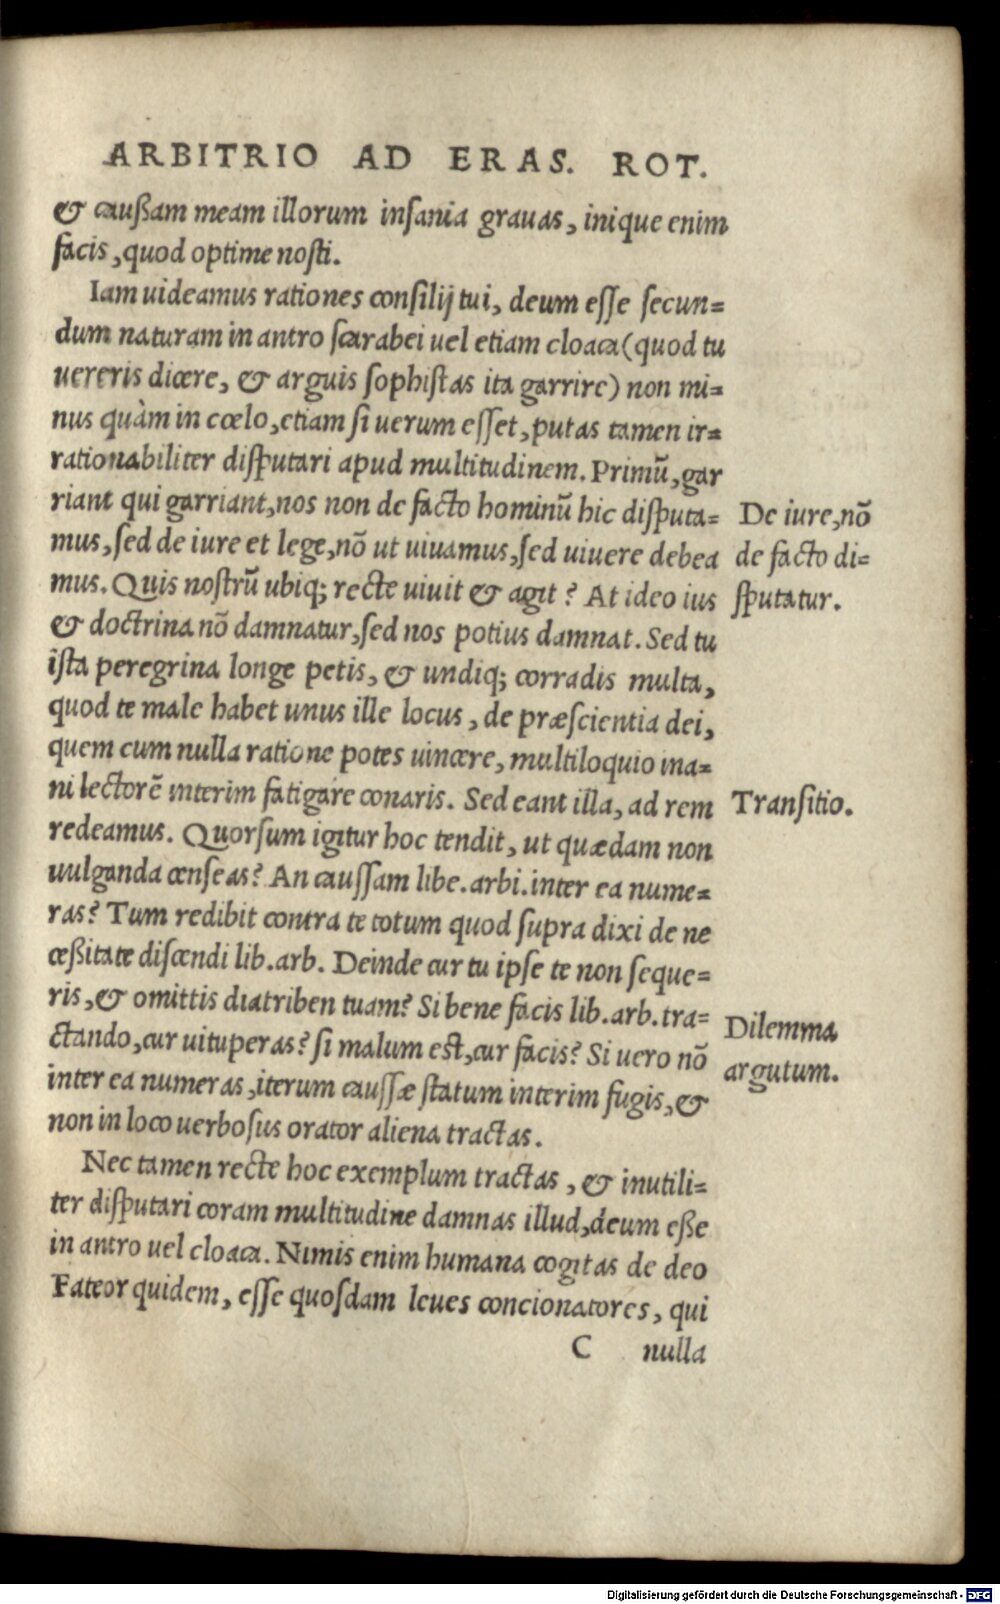 ARBITRIO AD ERAS. ROT.
& caußam meam illorum insania grauas, inique enim
facis, quod optime nosti.
Iam uideamus rationes consilij tui, deum esse secun=
dum naturam in antro scarabei uel etiam cloaca (quod tu
uereris dicere, & arguis sophistas ita garrire) non mi=
nus quàm in cœlo, etiam si uerum esset, putas tamen ir=
rationabiliter disputari apud multitudinem. Primū, gar
riant qui garriant, nos non de facto hominū hic disputa=
mus, sed de iure et lege, nō ut uiuamus, sed uiuere debea
mus. Quis nostrū ubiq; recte uiuit & agit? At ideo ius
& doctrina nō damnatur, sed nos potius damnat. Sed tu
ista peregrina longe petis, & undiq; corradis multa,
quod te male habet unus ille locus, de præscientia dei,
quem cum nulla ratione potes uincere, multiloquio ina=
ni lectorē interim fatigare conaris. Sed eant illa, ad rem
redeamus. Quorsum igitur hoc tendit, ut quædam non
uulganda censeas? An caussam libe. arbi. inter ea nume=
ras? Tum redibit contra te totum quod supra dixi de ne
ceßitate discendi lib. arb. Deinde cur tu ipse te non seque=
ris, & omittis diatriben tuam? Si bene facis lib. arb. tra=
ctando, cur uituperas? si malum est, cur facis? Si uero nō
inter ea numeras, iterum caussæ statum interim fugis, &
non in loco uerbosus orator aliena tractas.
Nec tamen recte hoc exemplum tractas, & inutili=
ter disputari coram multitudine damnas illud, deum eße
in antro uel cloaca. Nimis enim humana cogitas de deo
Fateor quidem, esse quosdam leues concionatores, qui
C nulla
De iure, nō
de facto di=
sputatur.
Transitio.
Dilemma
argutum.
Digitalisierung gefördert durch die Deutsche Forschungsgemeinschaft - DFG